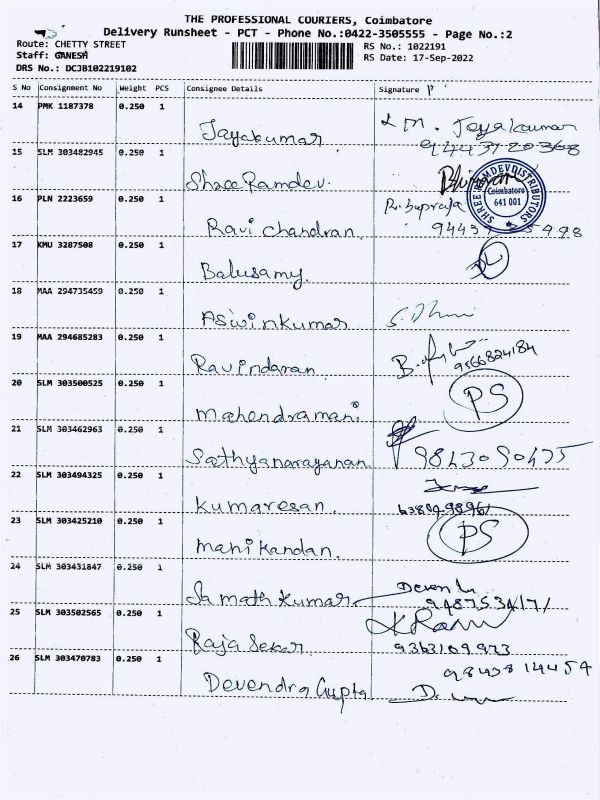 THE PROFESSIONAL COURIERS, Coimbatore
Delivery Runsheet - PCT - Phone No.:0422-3505555 - Page No.:2
Route: CHETTY STREET
RS No.: 1022191
Staff: GANESH
RS Date: 17-Sep-2022
DRS No.: DCJB102219102
S No Consignment No Weight PCS Consignee Details Signature
14 PMK 1187378 0.250 1
Jayakumar
M. Jeyakumar
15 SLM 303482945 0.250 1
Shree Ramdev.
SHREE RAMDEV DISTRIBUTORS
Coimbatore
641 001
16 PLN 2223659 0.250 1
Ravi Chandran
17 KMU 3287508 0.250 1
Balusamy.
18 MAA 294735459 0.250 1
Aswinkumar
19 MAA 294685283 0.250 1
Ravindaran.
9566824184
20 SLM 303500525 0.250 1
Mahendramani
PS
21 SLM 303462963 0.250 1
Sathyanarayanan.
22 SLM 303494325 0.250 1
Kumaresan.
23 SLM 303425210 0.250 1
Manikandan.
PS
24 SLM 303431847 0.250 1
Samath Kumar
25 SLM 303502565 0.250 1
Raja Sekar.
9363109973
26 SLM 303470783 0.250 1
Devendra Gupta